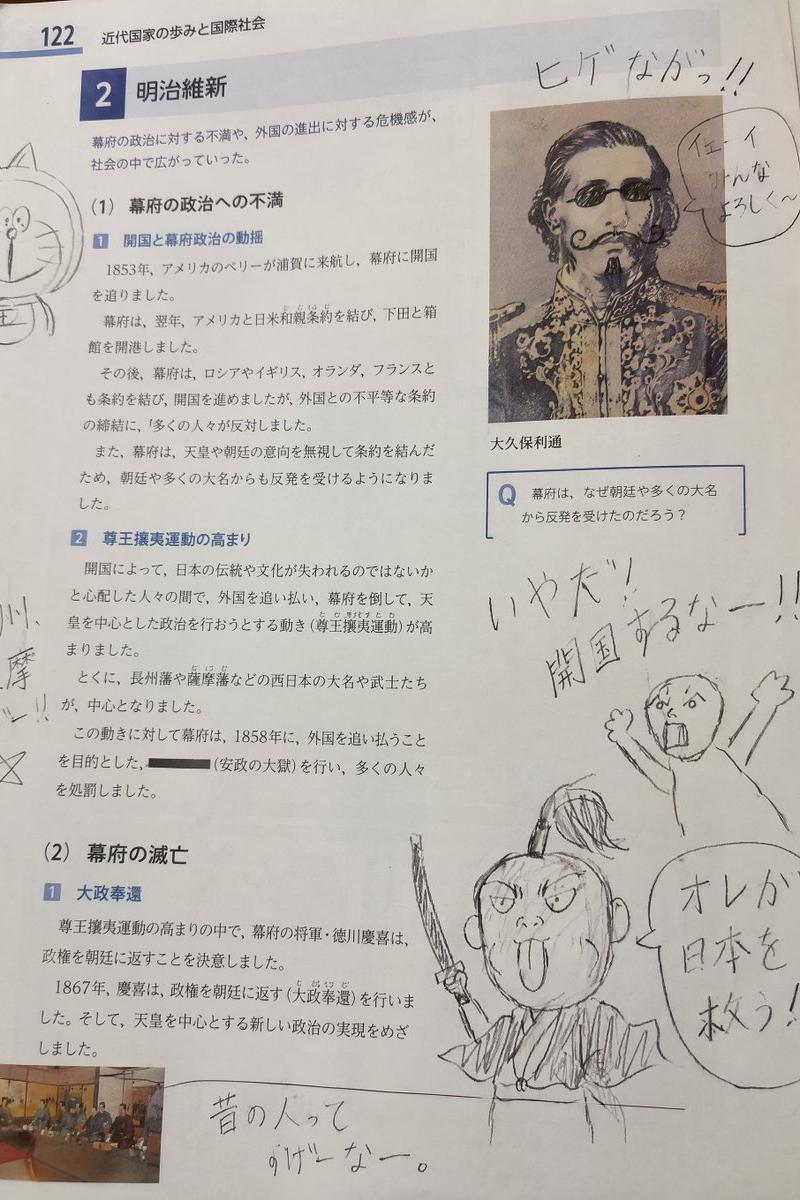 122 近代国家の歩みと国際社会
2 明治維新
幕府の政治に対する不満や、外国の進出に対する危機感が、
社会の中で広がっていった。
(1) 幕府の政治への不満
1 開国と幕府政治の動揺
1853年, アメリカのペリーが浦賀に来航し, 幕府に開国
を迫りました。
幕府は, 翌年, アメリカと日米和親条約を結び, 下田と箱
館を開港しました。
その後, 幕府は, ロシアやイギリス, オランダ, フランスと
も条約を結び, 開国を進めましたが, 外国との不平等な条約
の締結に, 「多くの人々が反対しました。
また, 幕府は, 天皇や朝廷の意向を無視して条約を結んだ
ため, 朝廷や多くの大名からも反発を受けるようになりま
した。
2 尊王攘夷運動の高まり
開国によって, 日本の伝統や文化が失われるのではないか
と心配した人々の間で, 外国を追い払い, 幕府を倒して, 天
皇を中心とした政治を行おうとする動き(尊王攘夷運動)が高
まりました。
とくに, 長州藩や薩摩藩などの西日本の大名や武士たち
が, 中心となりました。
この動きに対して幕府は, 1858年に, 外国を追い払うこと
を目的とした, (安政の大獄)を行い, 多くの人々
を処罰しました。
(2) 幕府の滅亡
1 大政奉還
尊王攘夷運動の高まりの中で, 幕府の将軍・徳川慶喜は,
政権を朝廷に返すことを決意しました。
1867年, 慶喜は, 政権を朝廷に返す(大政奉還)を行いま
した。そして, 天皇を中心とする新しい政治の実現をめざ
しました。
ヒゲながっ!!
イェーイ
みんな
よろしく〜
大久保利通
Q 幕府は, なぜ朝廷や多くの大名
から反発を受けたのだろう?
いやだ!!
開国するなー!!
オレが
日本を
救う!
州、
摩
昔の人って
すげーなー。